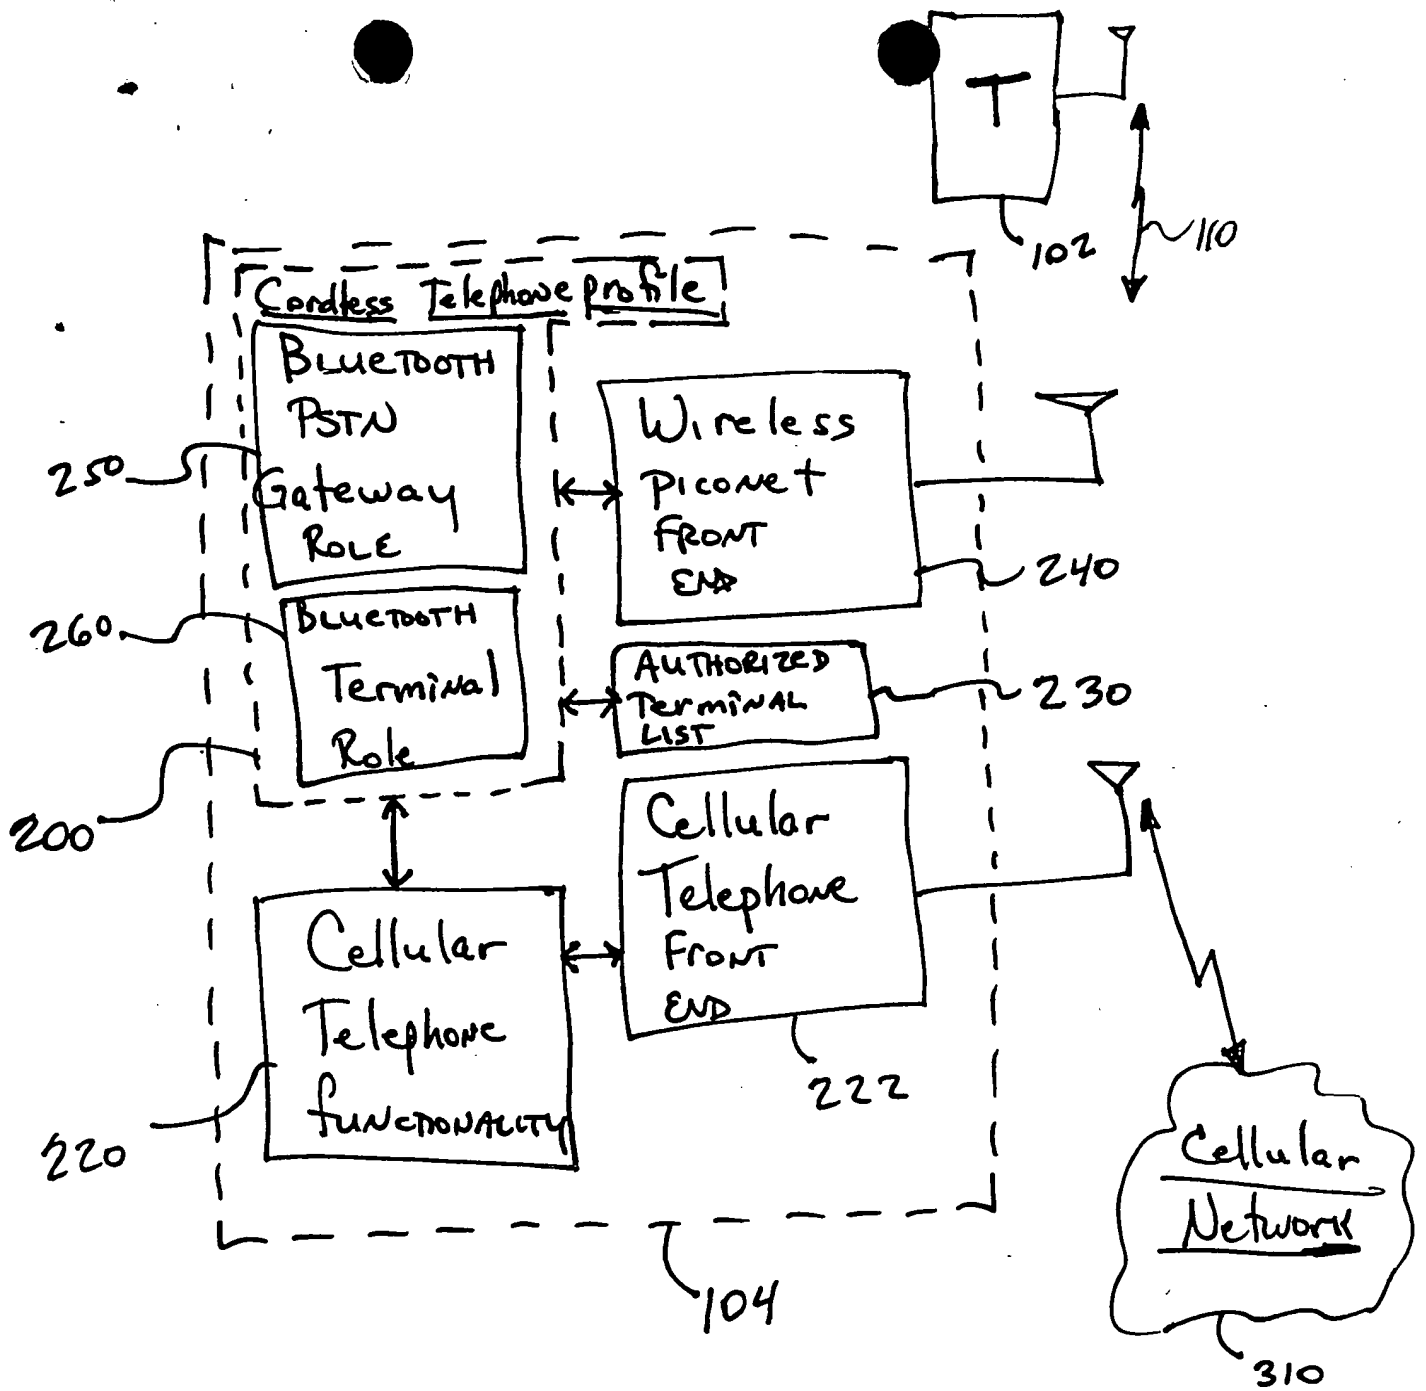 T
102
110
Cordless Telephone profile
BLUETOOTH
PSTN
Gateway
ROLE
250
Wireless
PICONET
FRONT
END
240
260
BLUETOOTH
Terminal
Role
AUTHORIZED
Terminal
LIST
230
200
Cellular
Telephone
FRONT
END
222
Cellular
Telephone
functionality
220
104
Cellular
Network
310